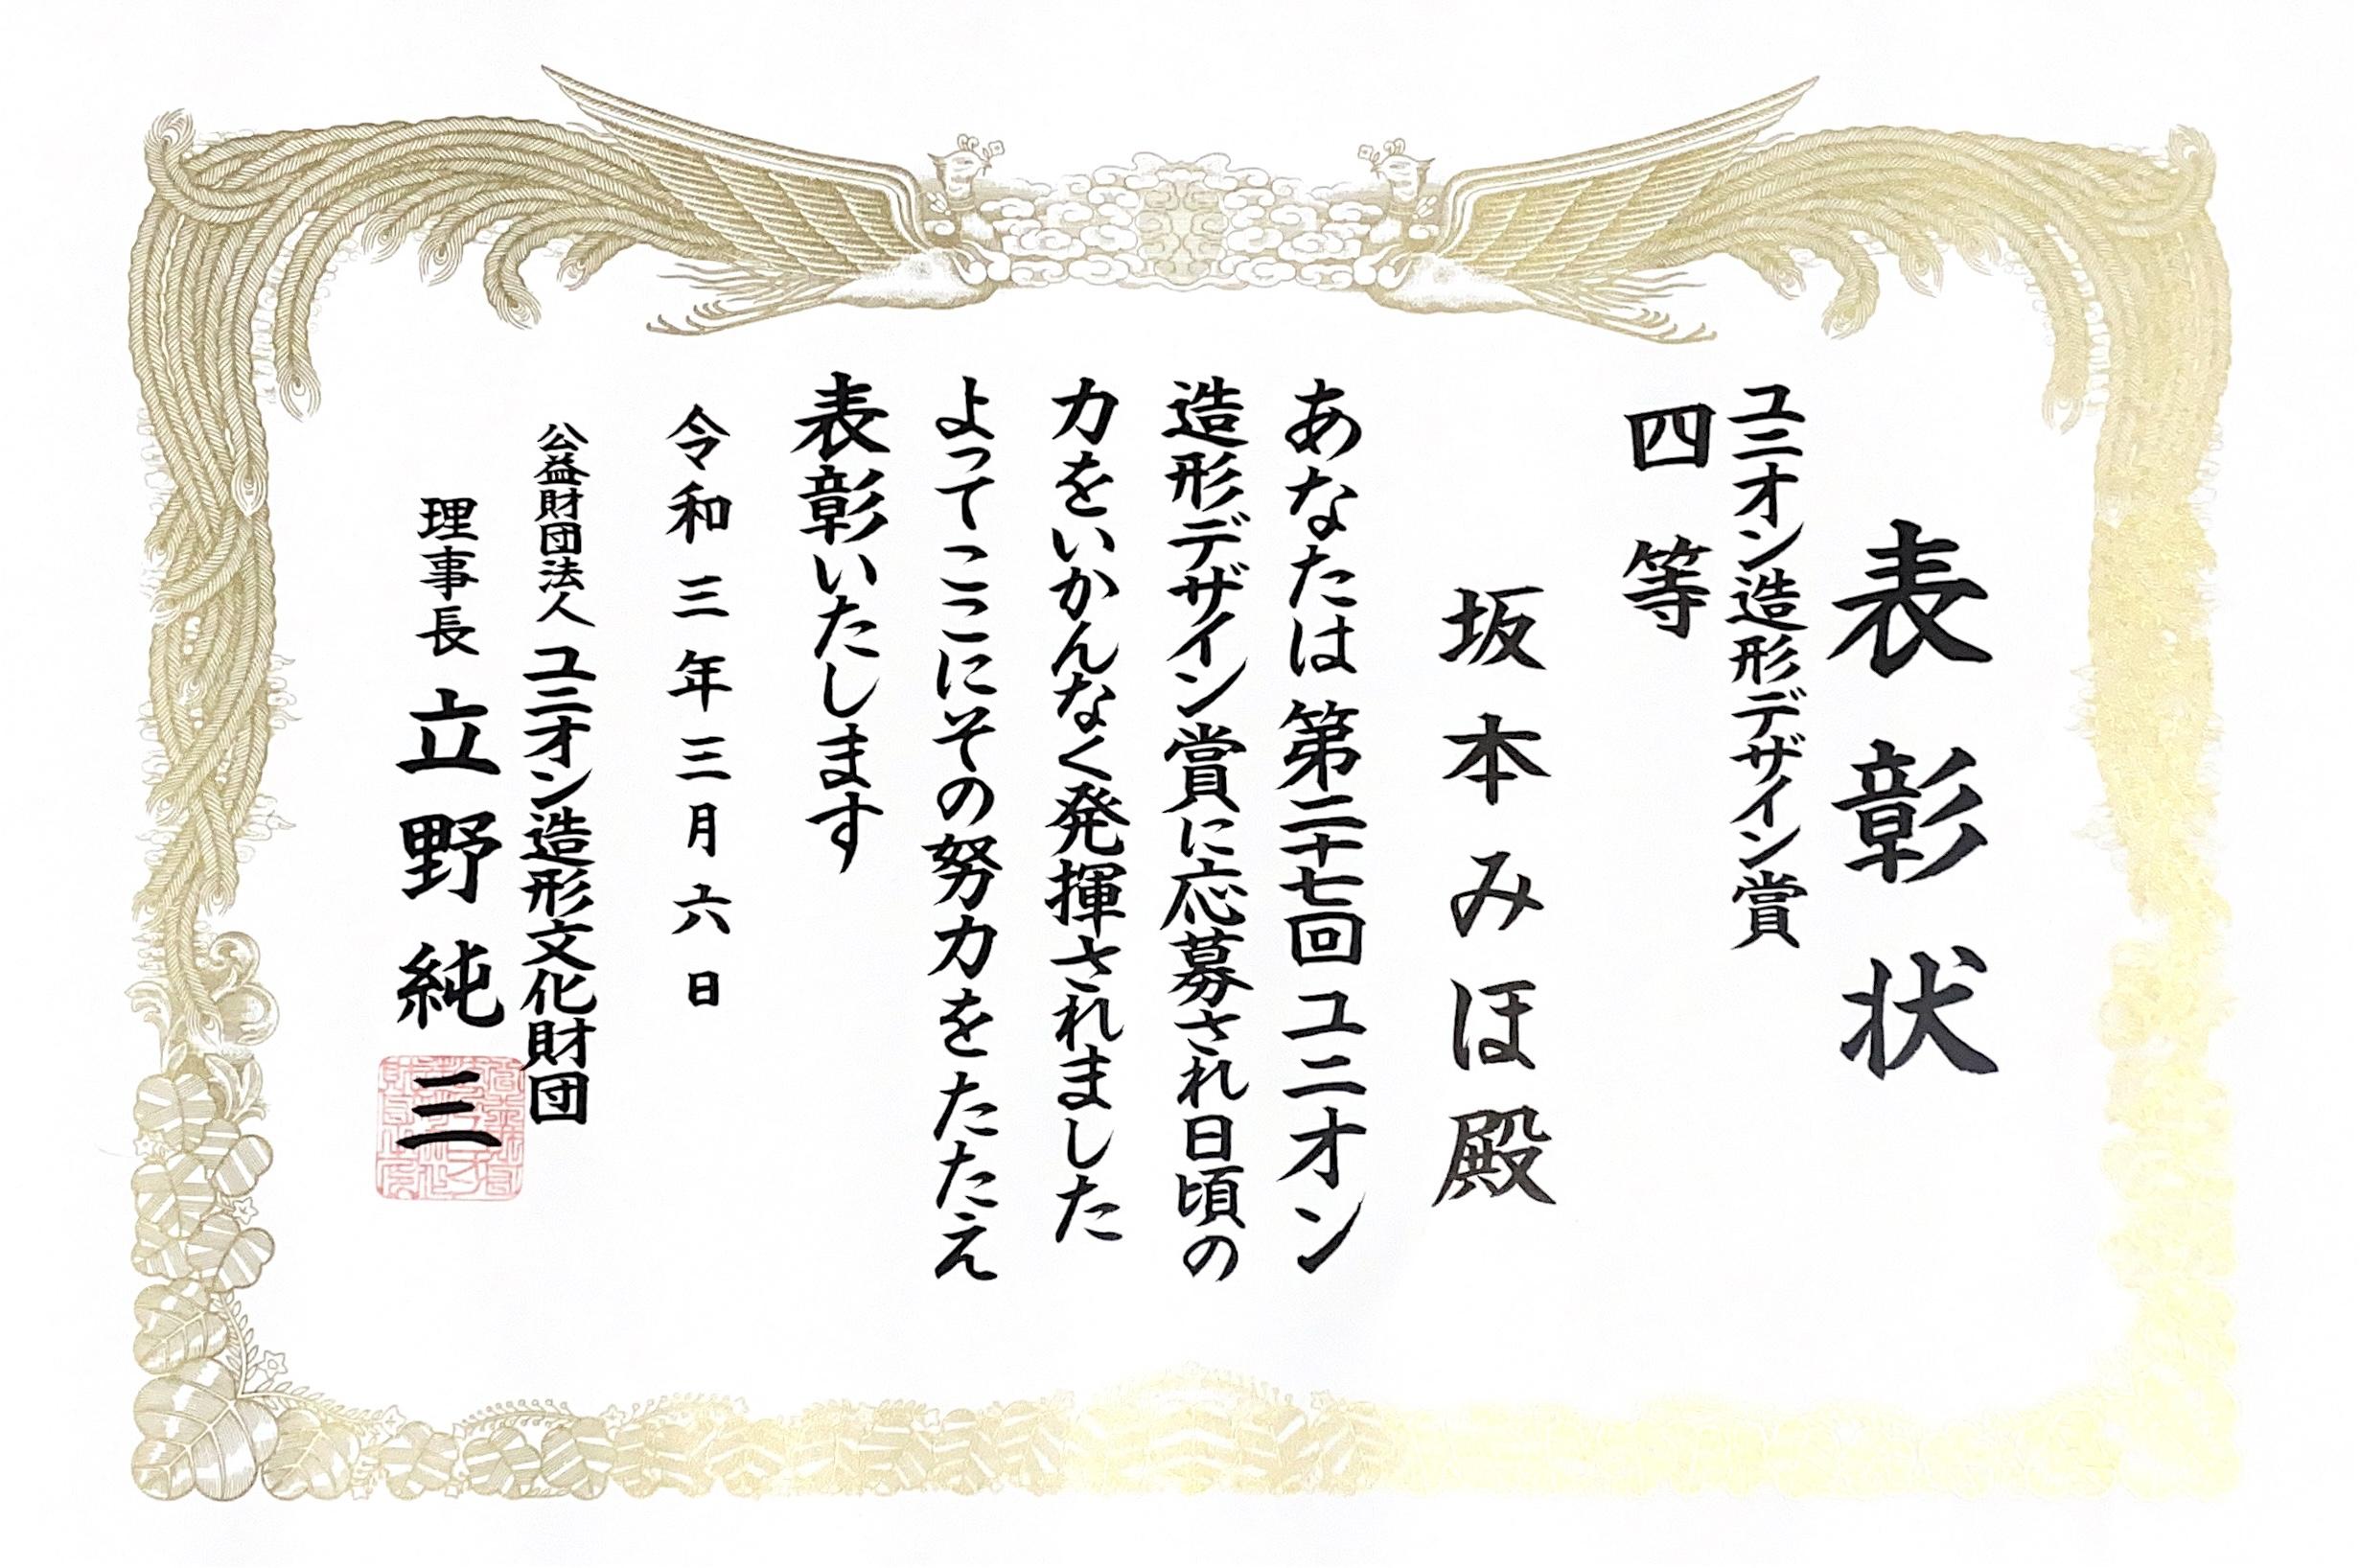 表彰状
ユニオン造形デザイン賞
四等
坂本みほ殿
あなたは第二十七回ユニオン
造形デザイン賞に応募され日頃の
力をいかんなく発揮されました
よってここにその努力をたたえ
表彰いたします
令和三年三月六日
公益財団法人 ユニオン造形文化財団
理事長 立野純三